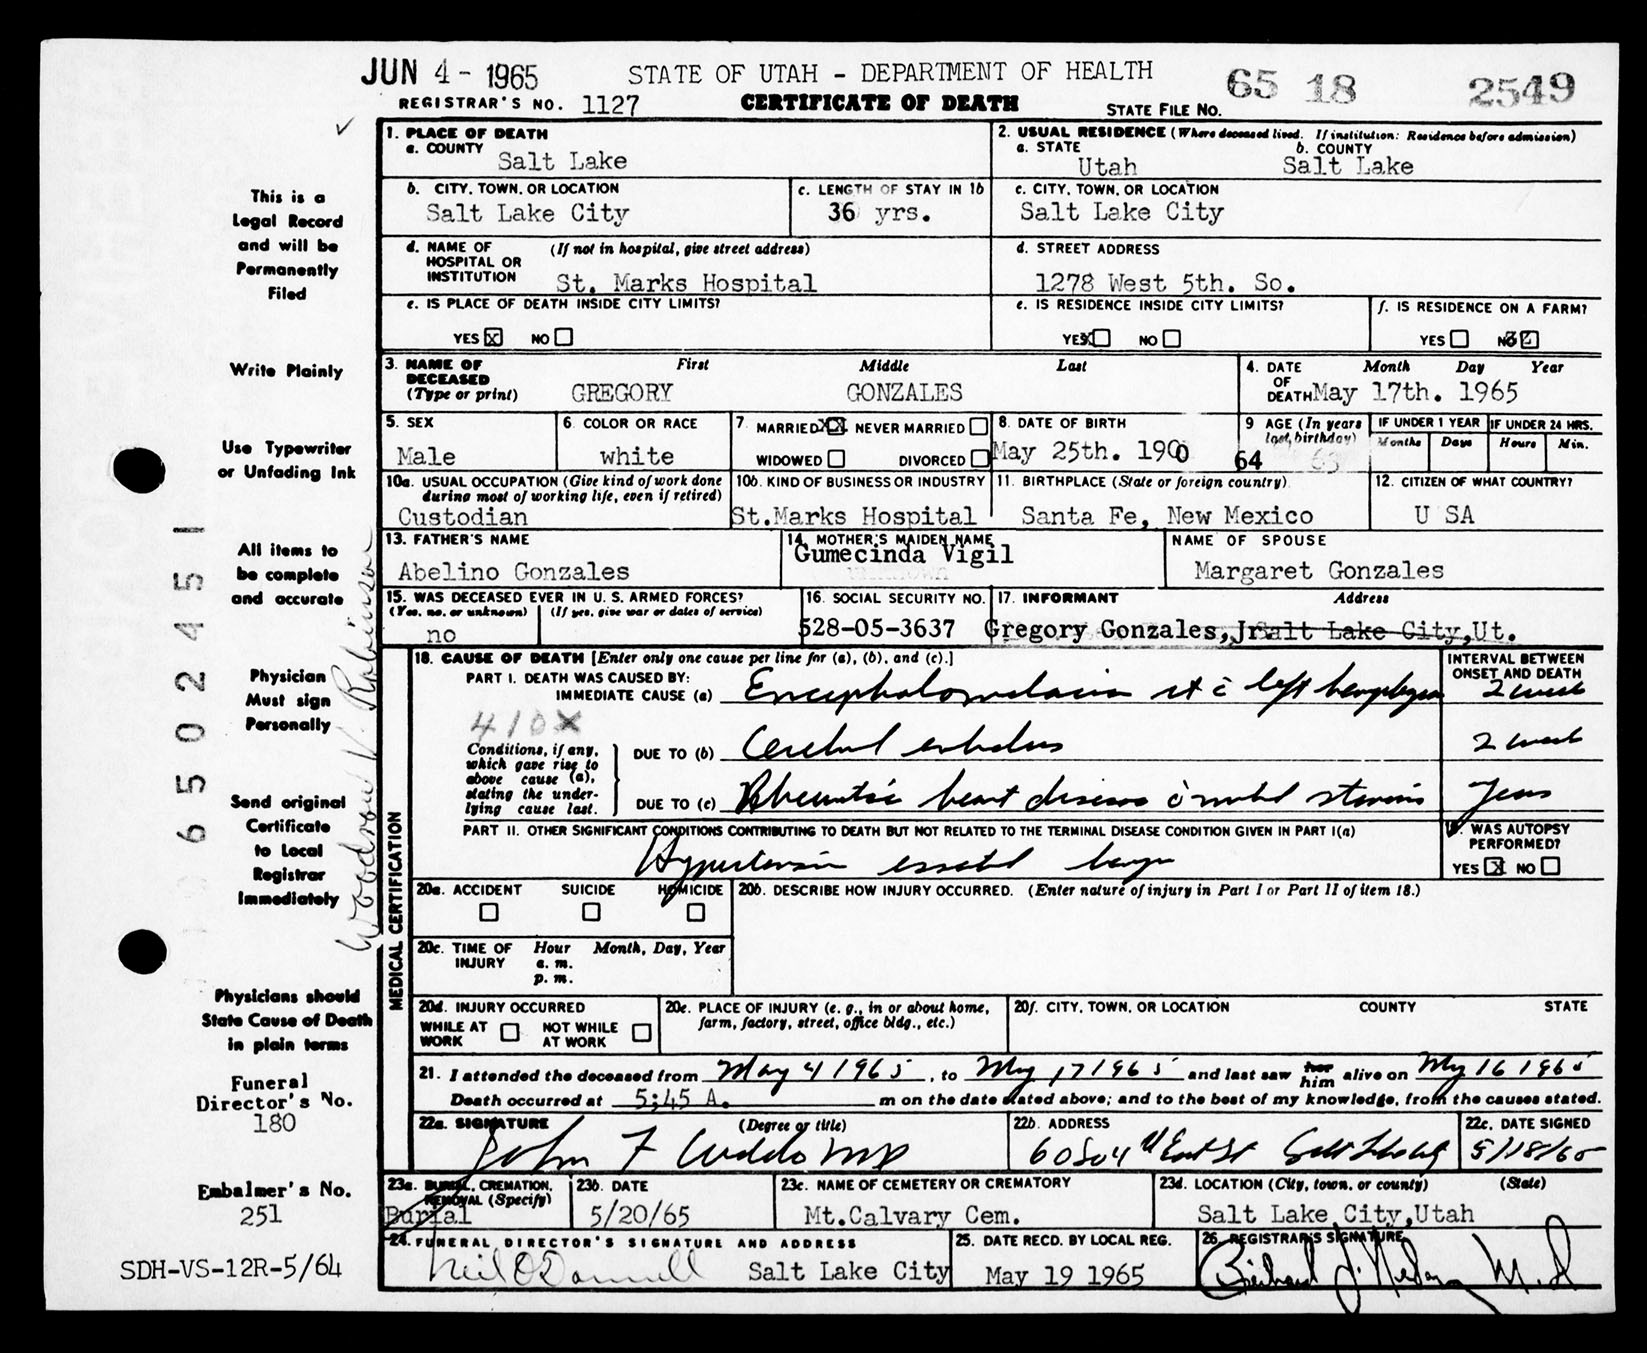 JUN 4 - 1965 STATE OF UTAH - DEPARTMENT OF HEALTH 65 18 2549
REGISTRAR'S NO. 1127 CERTIFICATE OF DEATH STATE FILE NO.
1. PLACE OF DEATH
a. COUNTY
Salt Lake
2. USUAL RESIDENCE (Where deceased lived. If institution: Residence before admission)
a. STATE b. COUNTY
Utah Salt Lake
b. CITY, TOWN, OR LOCATION
Salt Lake City
c. LENGTH OF STAY IN 1b
36 yrs.
c. CITY, TOWN, OR LOCATION
Salt Lake City
d. NAME OF HOSPITAL OR INSTITUTION (If not in hospital, give street address)
St. Marks Hospital
d. STREET ADDRESS
1278 West 5th. So.
e. IS PLACE OF DEATH INSIDE CITY LIMITS?
YES X NO
e. IS RESIDENCE INSIDE CITY LIMITS?
YES X NO
f. IS RESIDENCE ON A FARM?
YES NO
3. NAME OF DECEASED (Type or print) First Middle Last
GREGORY GONZALES
4. DATE OF DEATH Month Day Year
May 17th. 1965
5. SEX
Male
6. COLOR OR RACE
white
7. MARRIED XX NEVER MARRIED
WIDOWED DIVORCED
8. DATE OF BIRTH
May 25th. 1900
9 AGE (In years last birthday)
64
IF UNDER 1 YEAR IF UNDER 24 HRS.
Months Days Hours Min.
10a. USUAL OCCUPATION (Give kind of work done during most of working life, even if retired)
Custodian
10b. KIND OF BUSINESS OR INDUSTRY
St.Marks Hospital
11. BIRTHPLACE (State or foreign country)
Santa Fe, New Mexico
12. CITIZEN OF WHAT COUNTRY?
U SA
13. FATHER'S NAME
Abelino Gonzales
14. MOTHER'S MAIDEN NAME
Gumecinda Vigil
NAME OF SPOUSE
Margaret Gonzales
15. WAS DECEASED EVER IN U. S. ARMED FORCES?
(Yes, no, or unknown) (If yes, give war or dates of service)
no
16. SOCIAL SECURITY NO.
528-05-3637
17. INFORMANT Address
Gregory Gonzales,Jr Salt Lake City,Ut.
MEDICAL CERTIFICATION
18. CAUSE OF DEATH [Enter only one cause per line for (a), (b), and (c).]
INTERVAL BETWEEN ONSET AND DEATH
PART I. DEATH WAS CAUSED BY:
IMMEDIATE CAUSE (a) Encephalomalacia rt c left hemiplegia 2 week
410X
Conditions, if any, which gave rise to above cause (a), stating the underlying cause last.
DUE TO (b) Cerebral embolus 2 week
DUE TO (c) Rheumatic heart disease c mitral stenosis Years
PART II. OTHER SIGNIFICANT CONDITIONS CONTRIBUTING TO DEATH BUT NOT RELATED TO THE TERMINAL DISEASE CONDITION GIVEN IN PART I(a)
Hypertension essential benign
19. WAS AUTOPSY PERFORMED?
YES X NO
20a. ACCIDENT SUICIDE HOMICIDE
20b. DESCRIBE HOW INJURY OCCURRED. (Enter nature of injury in Part I or Part II of item 18.)
20c. TIME OF INJURY Hour Month, Day, Year
a. m.
p. m.
20d. INJURY OCCURRED
WHILE AT WORK NOT WHILE AT WORK
20e. PLACE OF INJURY (e. g., in or about home, farm, factory, street, office bldg., etc.)
20f. CITY, TOWN, OR LOCATION COUNTY STATE
21. I attended the deceased from May 4 1965, to May 17 1965 and last saw her him alive on May 16 1965
Death occurred at 5:45 A. m on the date stated above; and to the best of my knowledge, from the causes stated.
22a. SIGNATURE (Degree or title)
John F MD
22b. ADDRESS
22c. DATE SIGNED
5/18/65
23a. BURIAL, CREMATION, REMOVAL (Specify)
Burial
23b. DATE
5/20/65
23c. NAME OF CEMETERY OR CREMATORY
Mt.Calvary Cem.
23d. LOCATION (City, town, or county) (State)
Salt Lake City,Utah
24. FUNERAL DIRECTOR'S SIGNATURE AND ADDRESS
Neil O'Donnell Salt Lake City
25. DATE RECD. BY LOCAL REG.
May 19 1965
26. REGISTRAR'S SIGNATURE
This is a
Legal Record
and will be
Permanently
Filed
Write Plainly
Use Typewriter
or Unfading Ink
All items to
be complete
and accurate
Physician
Must sign
Personally
Send original
Certificate
to Local
Registrar
Immediately
Physicians should
State Cause of Death
in plain terms
Funeral
Director's No.
180
Embalmer's No.
251
SDH-VS-12R-5/64
6 5 0 2 4 5 1
Woodrow V. Robinson